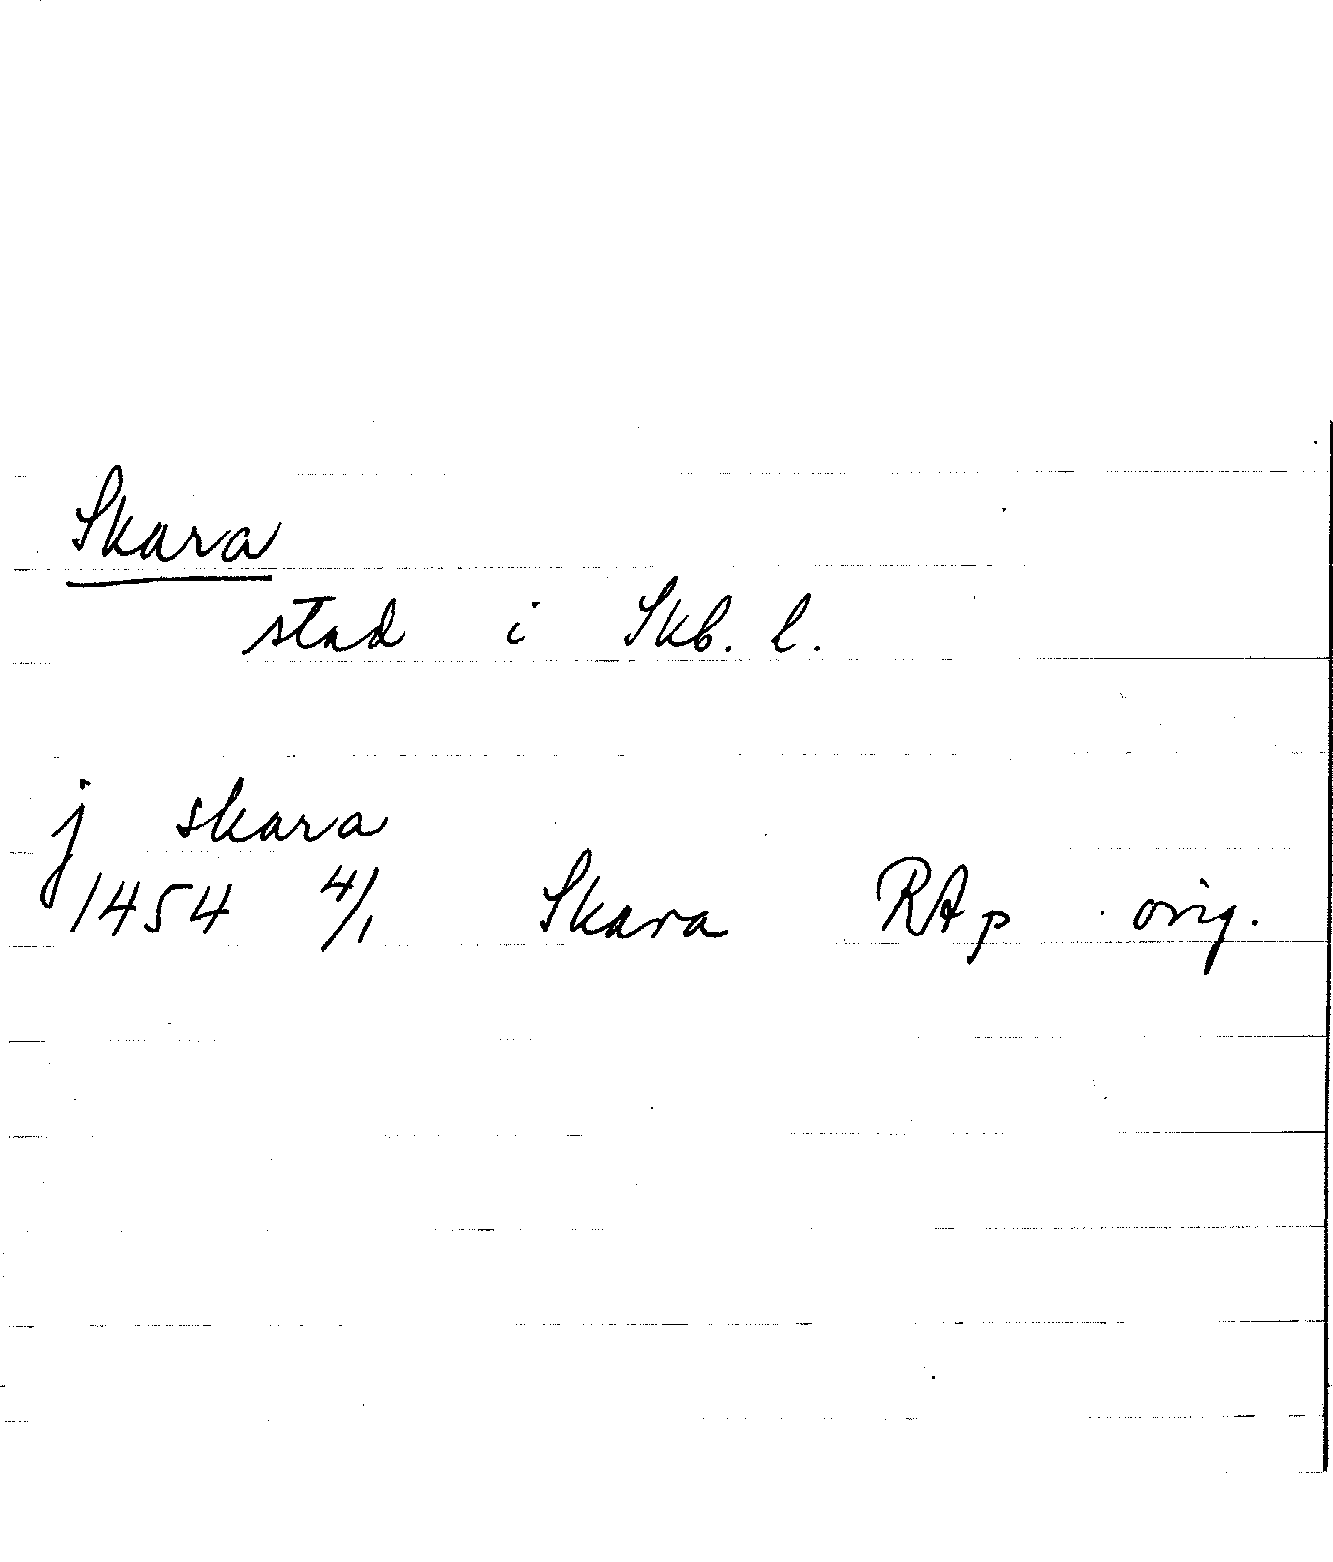 Skara
stad i Skb. l.
j skara
1454 4/1 Skara RAp orig.